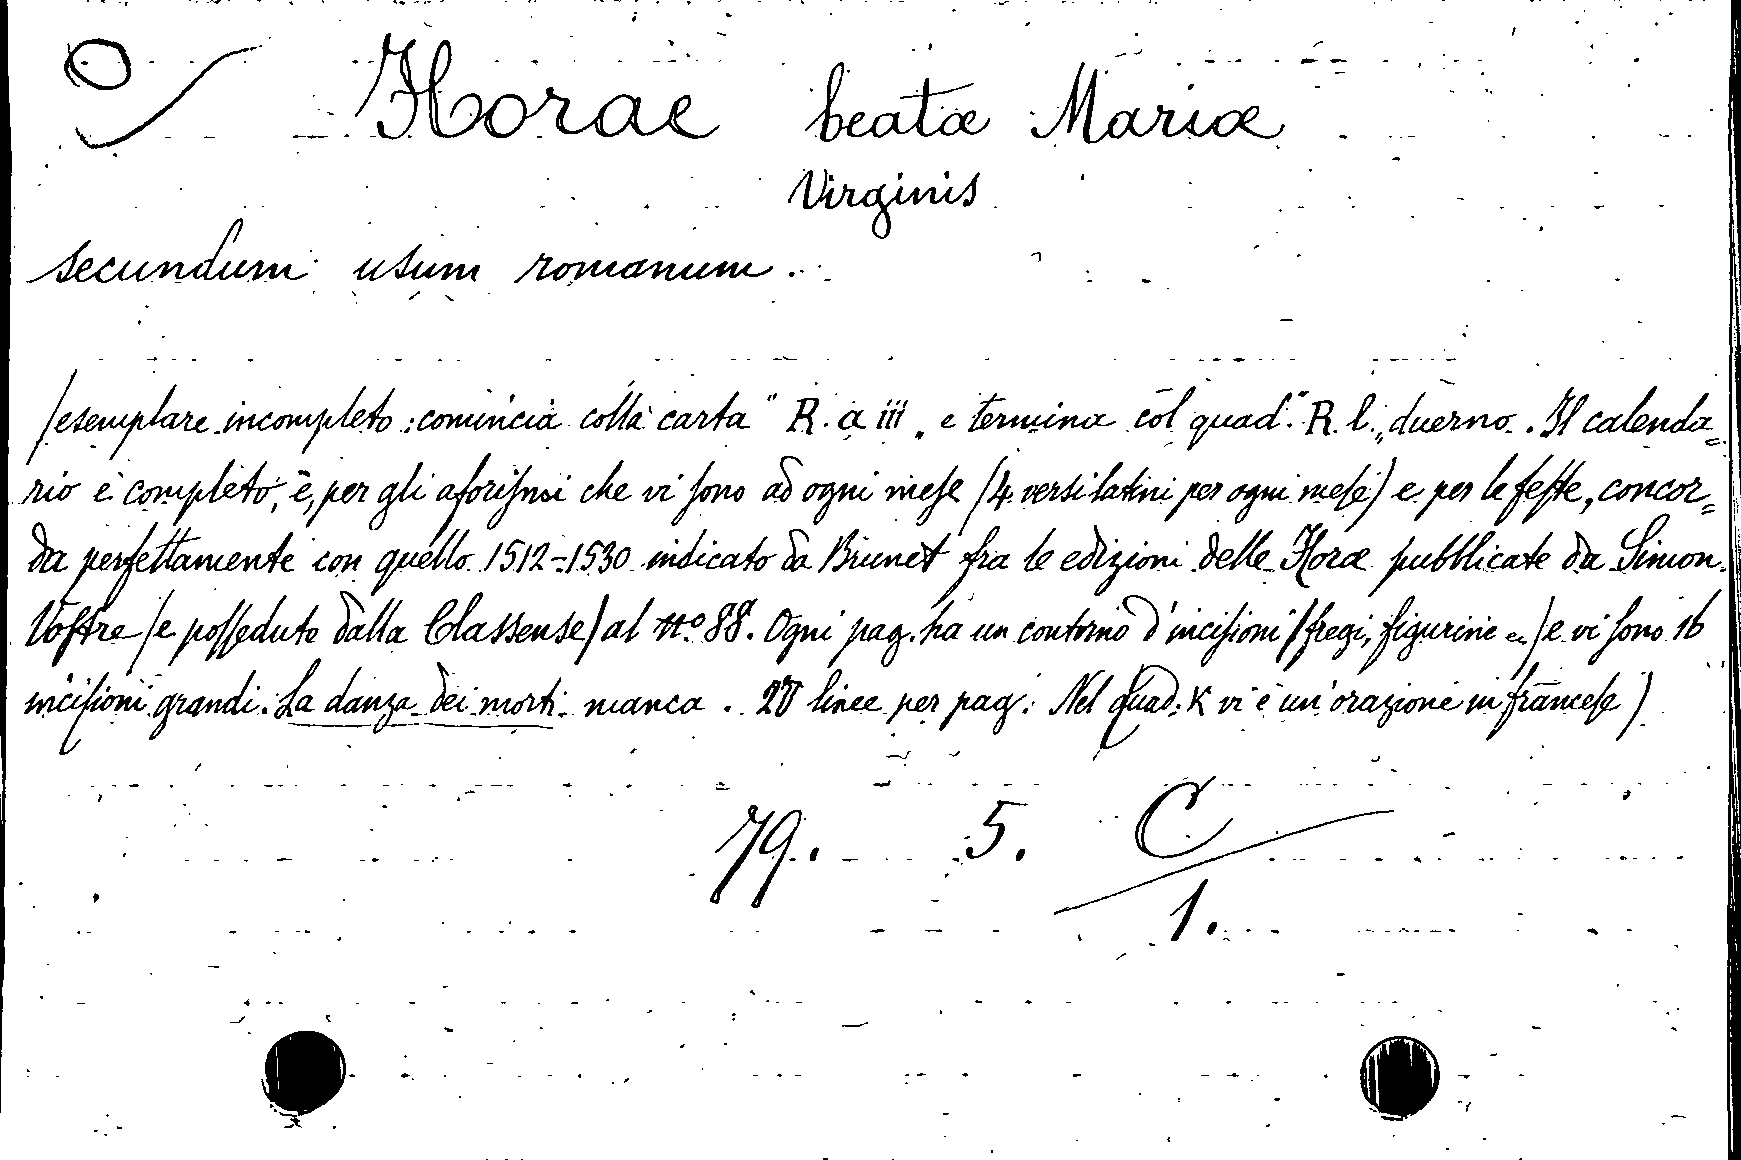 Horae beatæ Mariæ
Virginis
secundum usum romanum.
(esemplare incompleto: comincia colla carta "R. a iii„ e termina col quad. "R. l.„ duerno. Il calenda=
rio è completo, e, per gli aforismi che vi sono ad ogni mese (4 versi latini per ogni mese) e per le feste, concor=
da perfettamente con quello 1512-1530 indicato da Brunet fra le edizioni delle Horæ pubblicate da Simon
Vostre (e possedute dalla Classense) al nº 88. Ogni pag. ha un contorno d'incisioni (fregi, figurine ) e vi sono 16
incisioni grandi. La danza dei morti manca. linee per pag. Nel quad. K vi è un'orazione in francese)
79. 5. C
1.